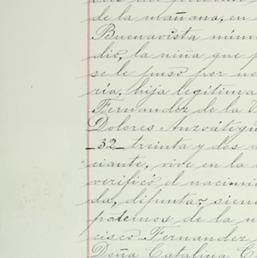 de la mañana, en
Buenavista núme
dio, la niña que p
se le puso por no
ría, hija legítima
Fernandez de la C
Dolores Anzoátegui
_32_ treinta y dos a
ciante, vive en la
verificó el nacimie
da, difuntas, sien
paternos de la n
cisco Fernandez
Doña Catalina C